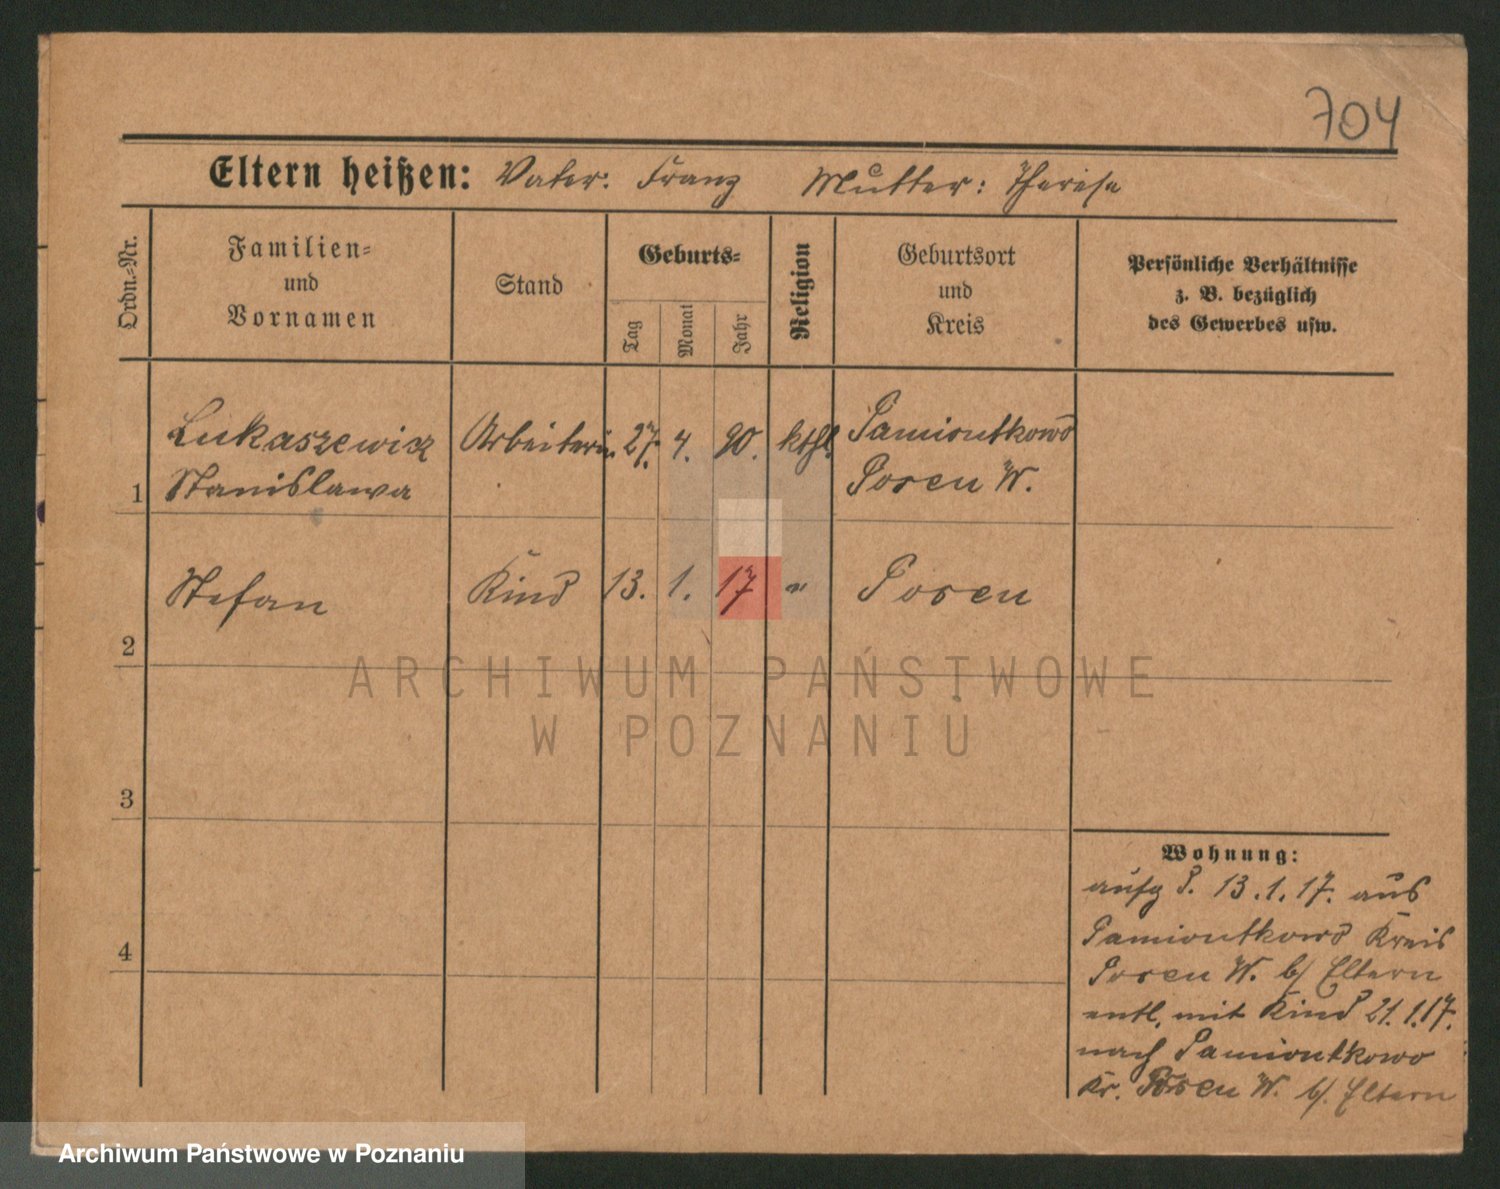 704
Eltern heißen: Vater: Franz Mutter: Therese
Ordn.=Nr.
Familien=
und
Vornamen
Stand
Geburts=
Tag
Monat
Jahr
Religion
Geburtsort
und
Kreis
Persönliche Verhältnisse
z. B. bezüglich
des Gewerbes usw.
Lukaszewicz Arbeiterin 27. 4. 90. kthl. Pamiontkowo
1 Stanislawa Posen W.
Stefan Kind 13. 1. 17 " Posen
2
ARCHIWUM PAŃSTWOWE
W POZNANIU
3
Wohnung:
aufg P. 13.1.17. aus
Pamiontkowo Kreis
Posen W. b/ Eltern
entl. mit Kind 21.1.17.
nach Pamiontkowo
Kr. Posen W. b/. Eltern
4
Archiwum Państwowe w Poznaniu